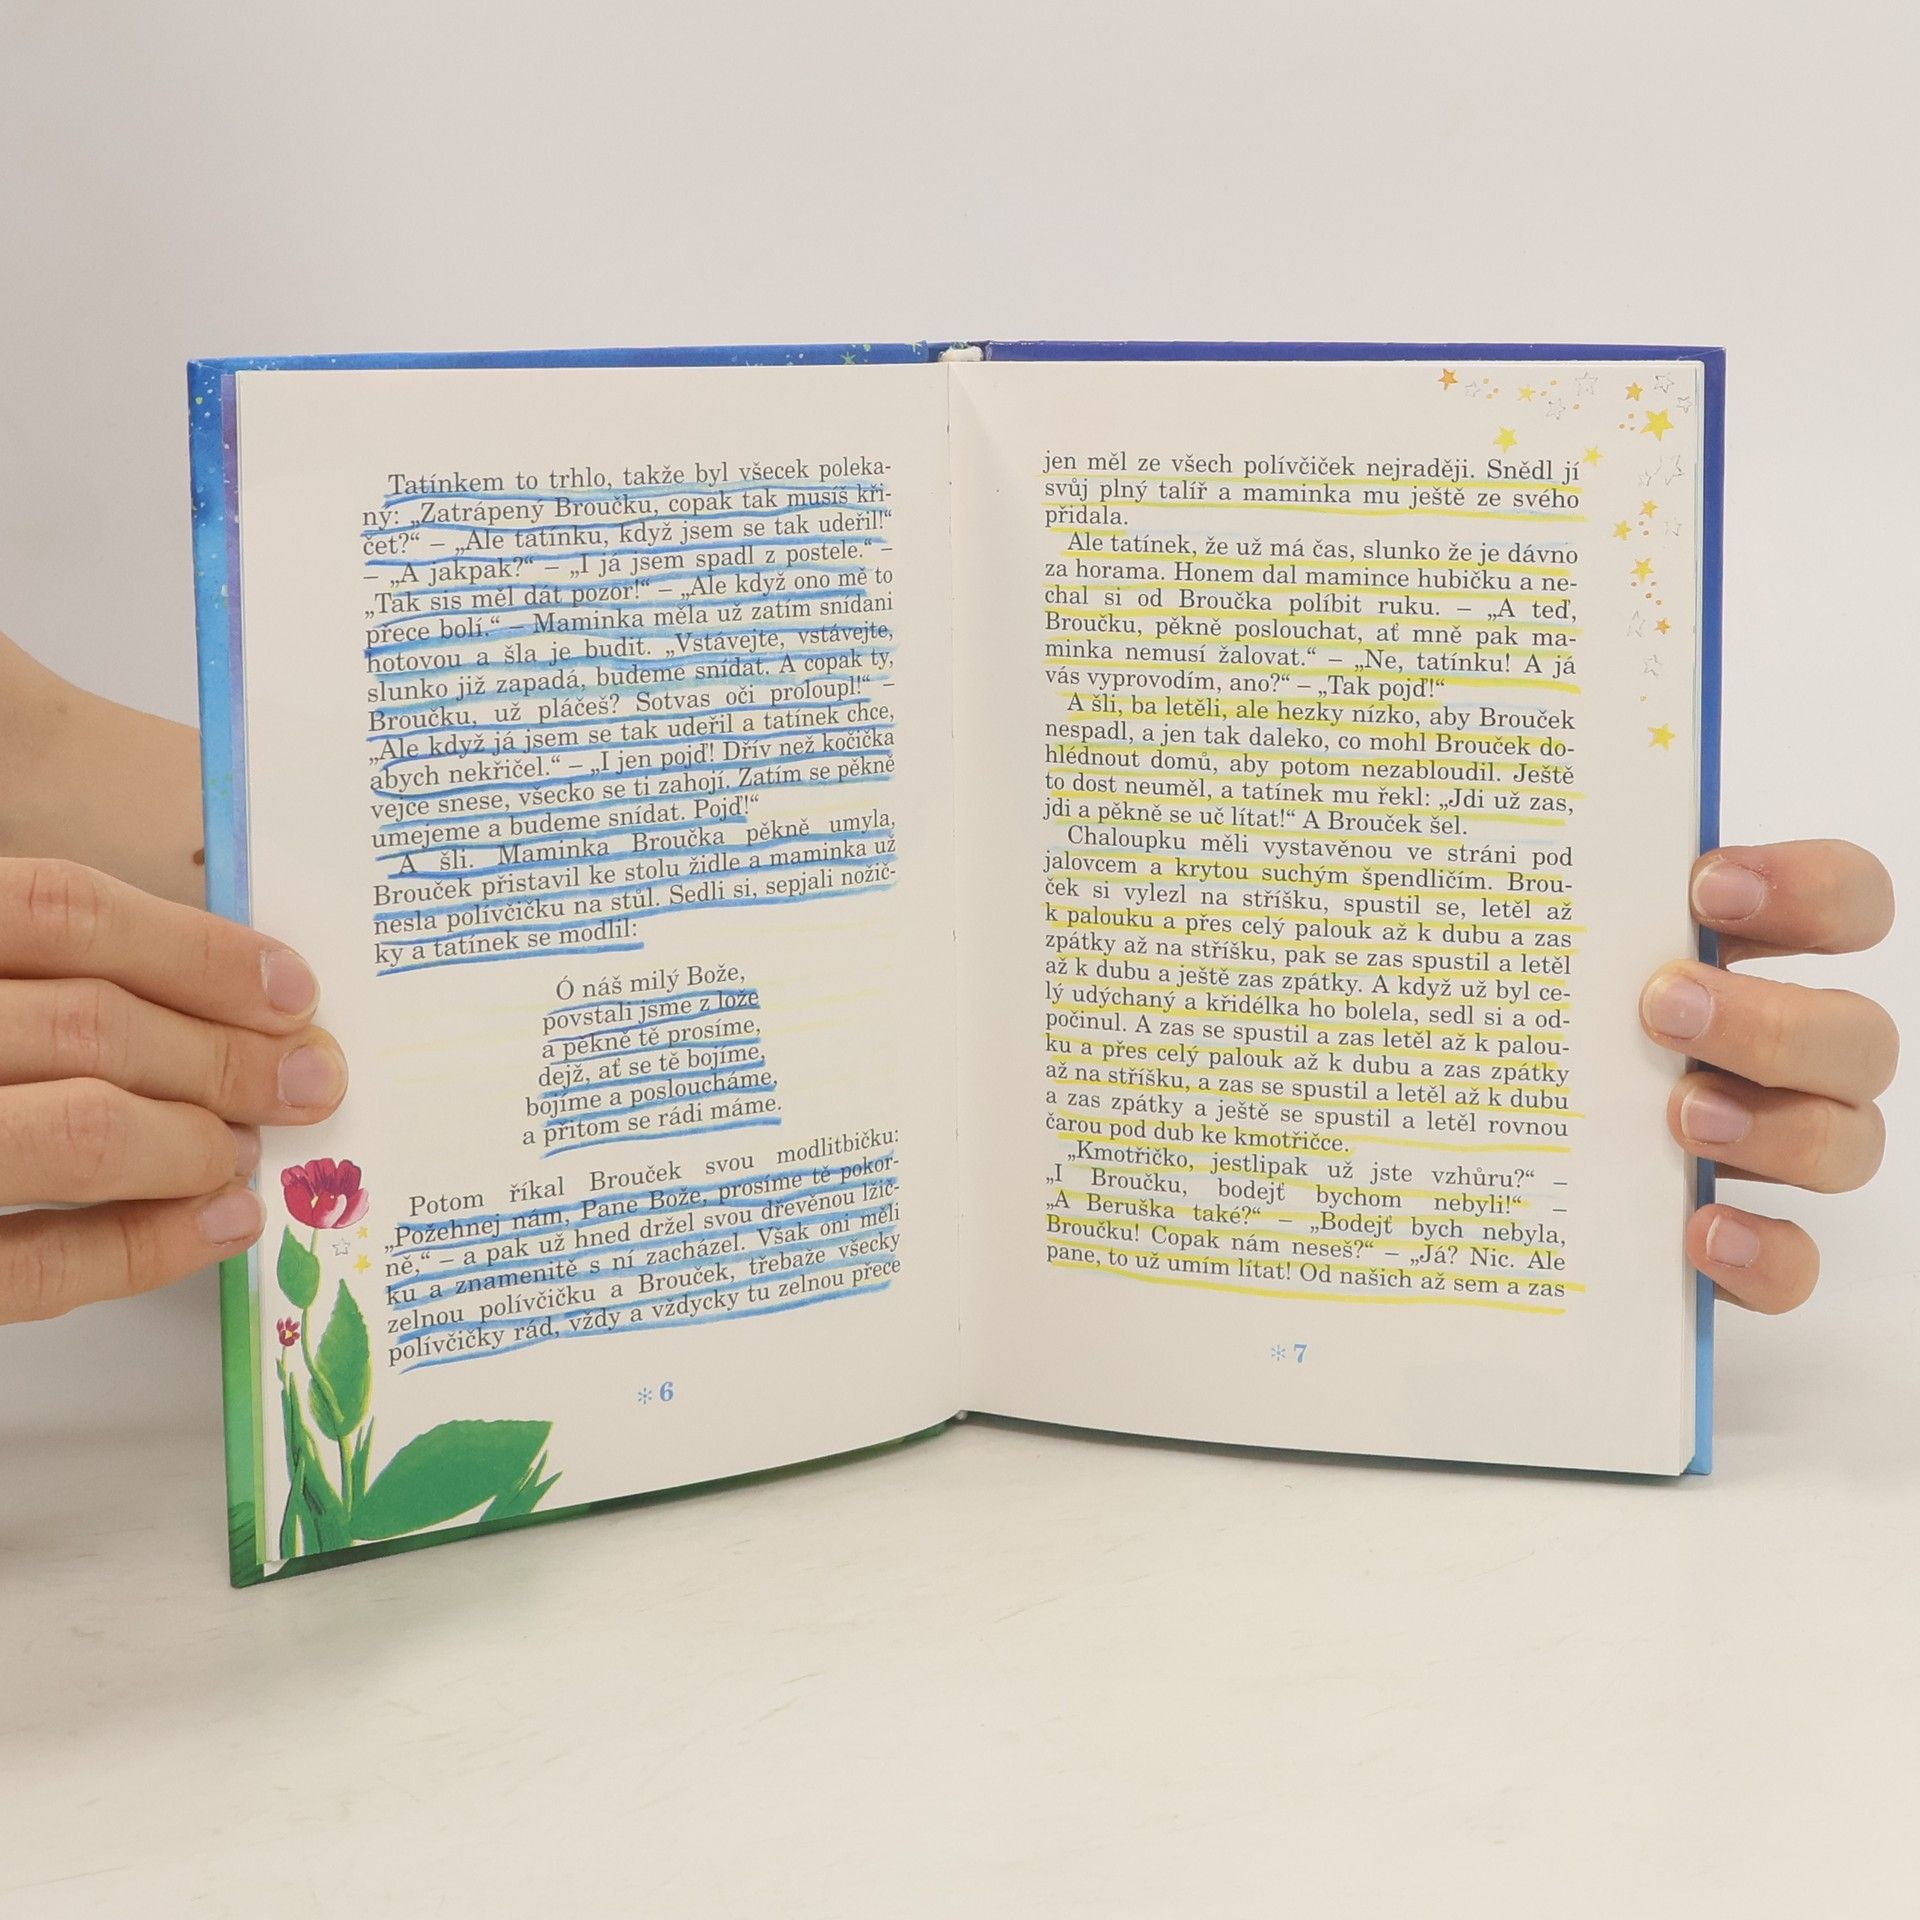 Tatínkem to trhlo, takže byl všecek poleka-
ný: „Zatrápený Broučku, copak tak musíš kři-
čet?“ – „Ale tatínku, když jsem se tak udeřil!“
– „A jakpak?“ – „I já jsem spadl z postele.“ –
„Tak sis měl dát pozor!“ – „Ale když ono mě to
přece bolí.“ – Maminka měla už zatím snídani
hotovou a šla je budit. „Vstávejte, vstávejte,
slunko již zapadá, budeme snídat. A copak ty,
Broučku, už pláčeš? Sotvas oči proloupl!“ –
„Ale když já jsem se tak udeřil a tatínek chce,
abych nekřičel.“ – „I jen pojď! Dřív než kočička
vejce snese, všecko se ti zahojí. Zatím se pěkně
umejeme a budeme snídat. Pojď!“
A šli. Maminka Broučka pěkně umyla,
Brouček přistavil ke stolu židle a maminka už
nesla polívčičku na stůl. Sedli si, sepjali nožič-
ky a tatínek se modlil:
Ó náš milý Bože,
povstali jsme z lože
a pěkně tě prosíme,
dejž, ať se tě bojíme,
bojíme a posloucháme,
a přitom se rádi máme.
Potom říkal Brouček svou modlitbičku:
„Požehnej nám, Pane Bože, prosíme tě pokor-
ně,“ – a pak už hned držel svou dřevěnou lžič-
ku a znamenitě s ní zacházel. Však oni měli
zelnou polívčičku a Brouček, třebaže všecky
polívčičky rád, vždy a vždycky tu zelnou přece
6
jen měl ze všech polívčiček nejraději. Snědl jí
svůj plný talíř a maminka mu ještě ze svého
přidala.
Ale tatínek, že už má čas, slunko že je dávno
za horama. Honem dal mamince hubičku a ne-
chal si od Broučka políbit ruku. – „A teď,
Broučku, pěkně poslouchat, ať mně pak ma-
minka nemusí žalovat.“ – „Ne, tatínku! A já
vás vyprovodím, ano?“ – „Tak pojď!“
A šli, ba letěli, ale hezky nízko, aby Brouček
nespadl, a jen tak daleko, co mohl Brouček do-
hlédnout domů, aby potom nezabloudil. Ještě
to dost neuměl, a tatínek mu řekl: „Jdi už zas,
jdi a pěkně se uč lítat!“ A Brouček šel.
Chaloupku měli vystavěnou ve stráni pod
jalovcem a krytou suchým špendličím. Brou-
ček si vylezl na stříšku, spustil se, letěl až
k palouku a přes celý palouk až k dubu a zas
zpátky až na stříšku, pak se zas spustil a letěl
až k dubu a ještě zas zpátky. A když už byl ce-
lý udýchaný a křidélka ho bolela, sedl si a od-
počinul. A zas se spustil a zas letěl až k palou-
ku a přes celý palouk až k dubu a zas zpátky
až na stříšku, a zas se spustil a letěl až k dubu
a zas zpátky a ještě se spustil a letěl rovnou
čarou pod dub ke kmotřičce.
„Kmotřičko, jestlipak už jste vzhůru?“ –
„I Broučku, bodejť bychom nebyli!“ –
„A Beruška také?“ – „Bodejť bych nebyla,
Broučku! Copak nám neseš?“ – „Já? Nic. Ale
pane, to už umím lítat! Od našich až sem a zas
7